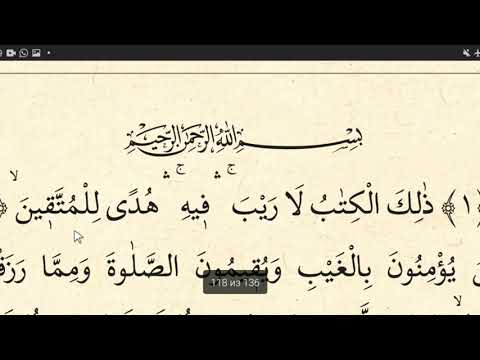 بِسْمِ اللّٰهِ الرَّحْمٰنِ الرَّحِيْمِ
﴿١﴾ ذٰلِكَ الْكِتٰبُ لَا رَيْبَ ۛۚ فٖيهِ ۛۚ هُدًى لِلْمُتَّقٖينَ ۙ
يُؤْمِنُونَ بِالْغَيْبِ وَيُقٖيمُونَ الصَّلٰوةَ وَمِمَّا
118 из 136